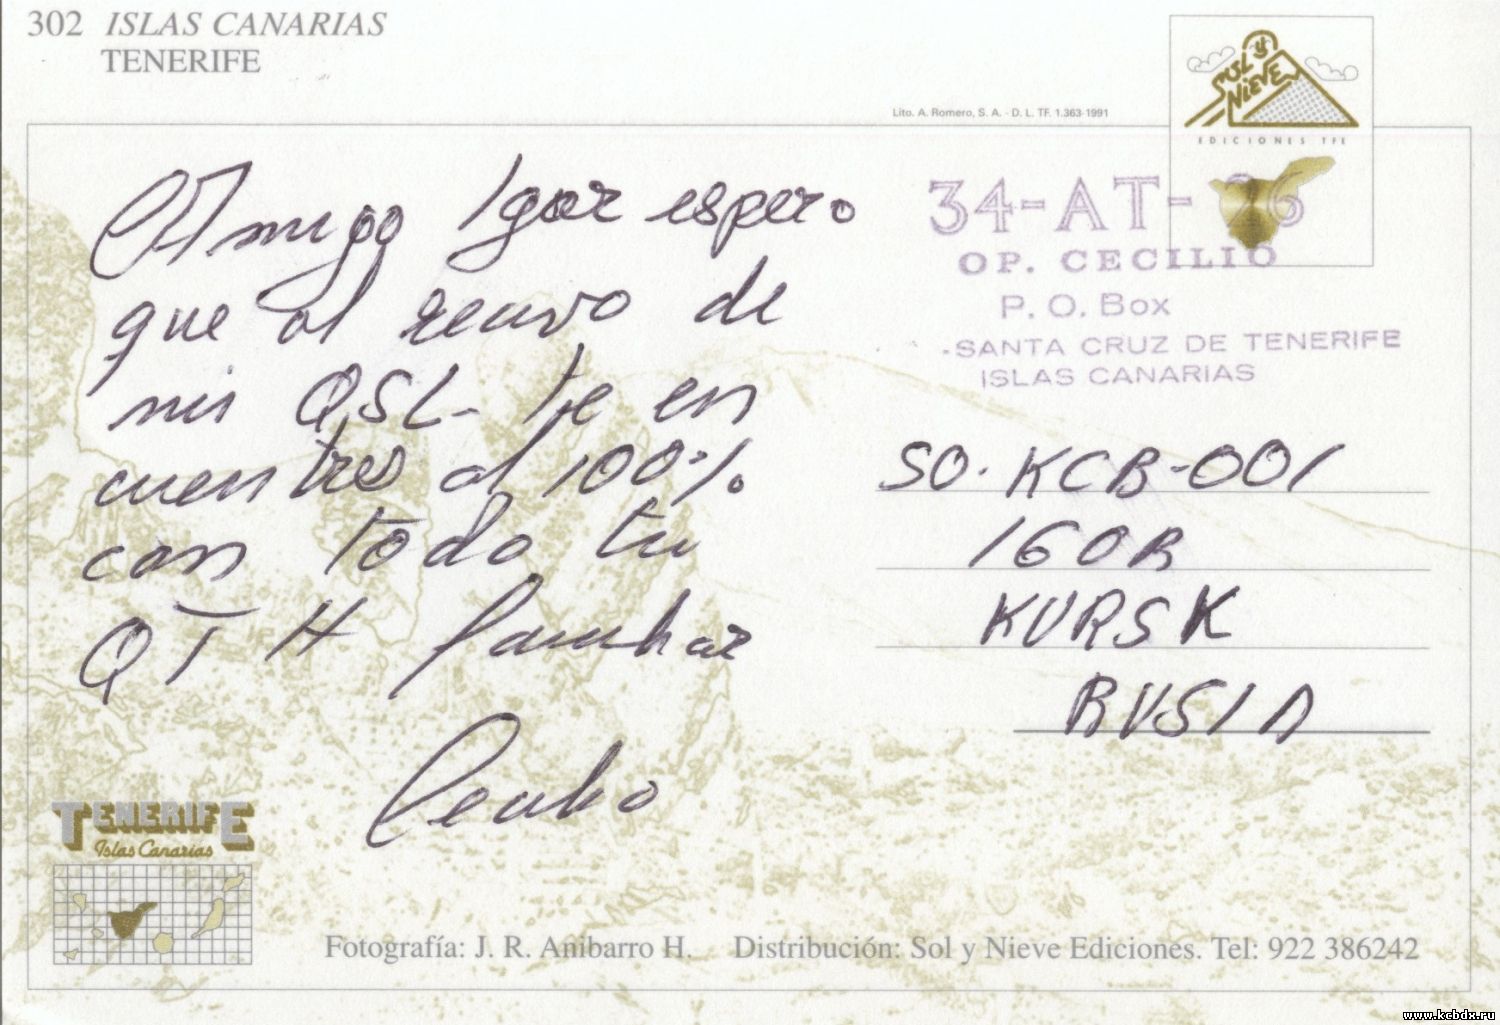 302 ISLAS CANARIAS
TENERIFE
Lito. A. Romero, S. A. - D. L. TF. 1.363-1991
SOL Y NIEVE
EDICIONES TFE
Amigo Igor espero
que al recivo de
mis QSL- te en
cuentres al 100%
con todo tu
QTH familiar
Cecilio
34-AT- 6
OP. CECILIO
P. O. Box
SANTA CRUZ DE TENERIFE
ISLAS CANARIAS
SO. KCB-001
IGOR
KURSK
RUSIA
TENERIFE
Islas Canarias
Fotografía: J. R. Anibarro H. Distribución: Sol y Nieve Ediciones. Tel: 922 386242
www.kcbdx.ru